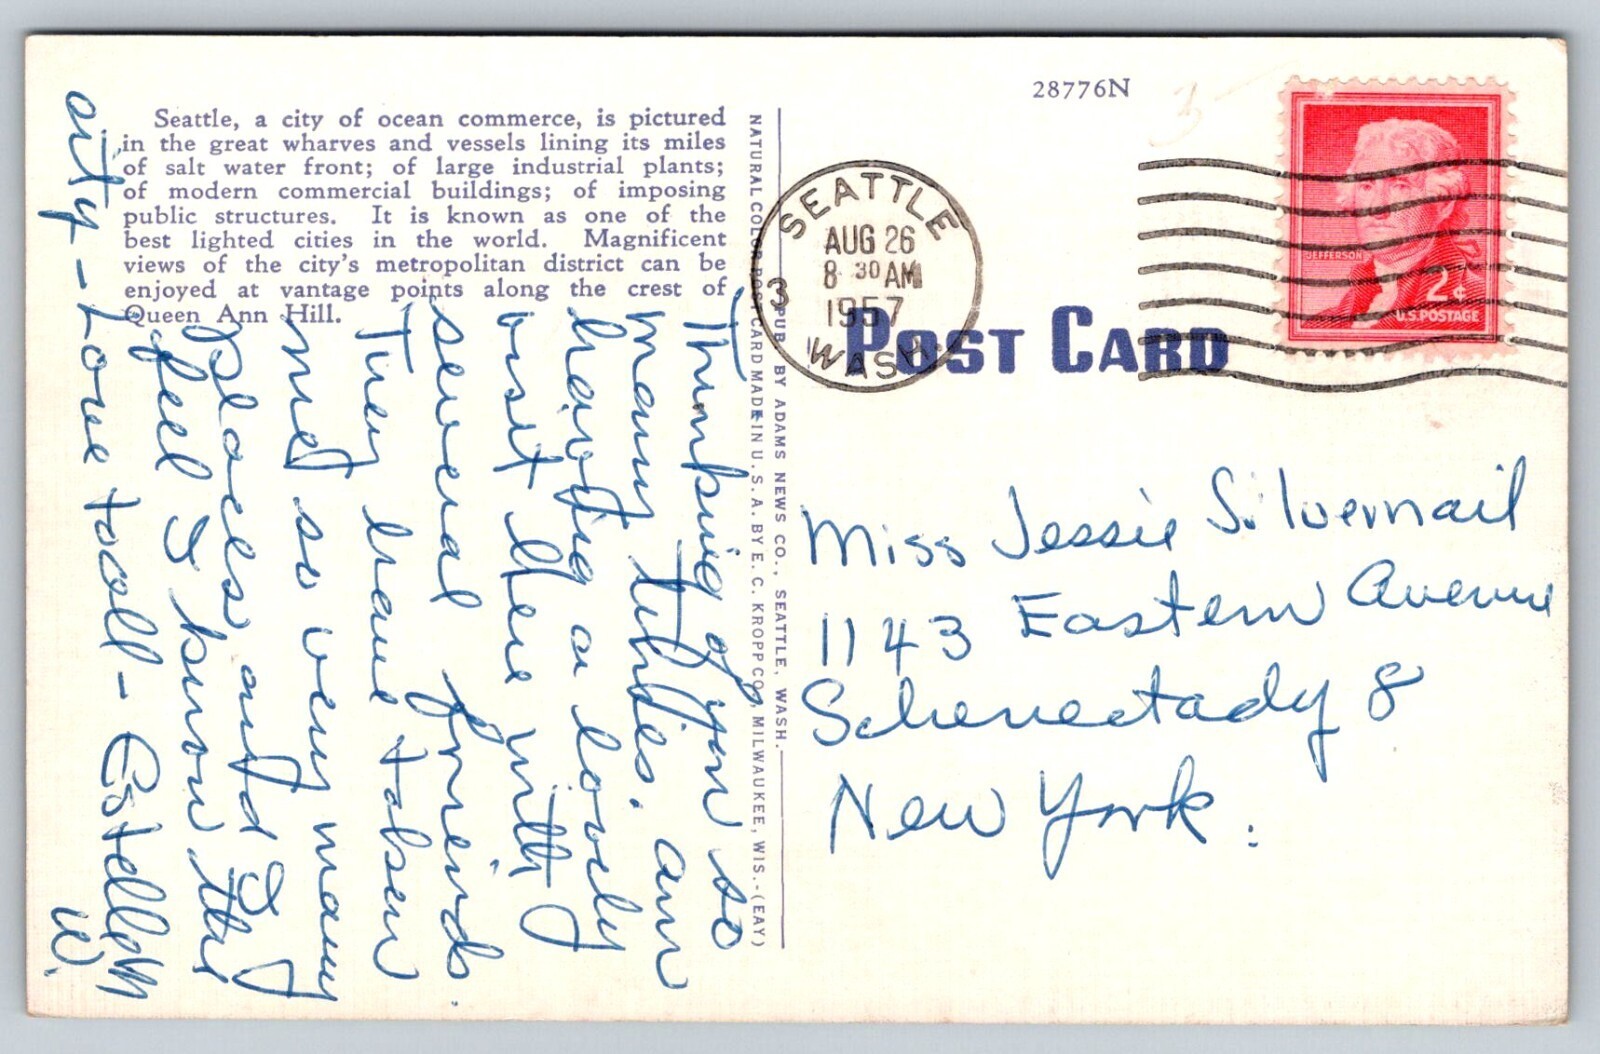 Seattle, a city of ocean commerce, is pictured
in the great wharves and vessels lining its miles
of salt water front; of large industrial plants;
of modern commercial buildings; of imposing
public structures. It is known as one of the
best lighted cities in the world. Magnificent
views of the city's metropolitan district can be
enjoyed at vantage points along the crest of
Queen Ann Hill.
Thinking of you so
many times. am
having a lovely
visit here with
several friends.
They have taken
me so very many
places and I
feel I know the
city - Love to all - Estelle M
W.
NATURAL COLOR POST CARD MADE IN U. S. A. BY E. C. KROPP CO., MILWAUKEE, WIS.-(EAY)
PUB. BY ADAMS NEWS CO., SEATTLE, WASH.
28776N
3
SEATTLE
AUG 26
8 30 AM
1957
WASH.
3
JEFFERSON
2¢
U.S. POSTAGE
POST CARD
Miss Jessie Silvernail
1143 Eastern Avenue
Schenectady 8
New York.